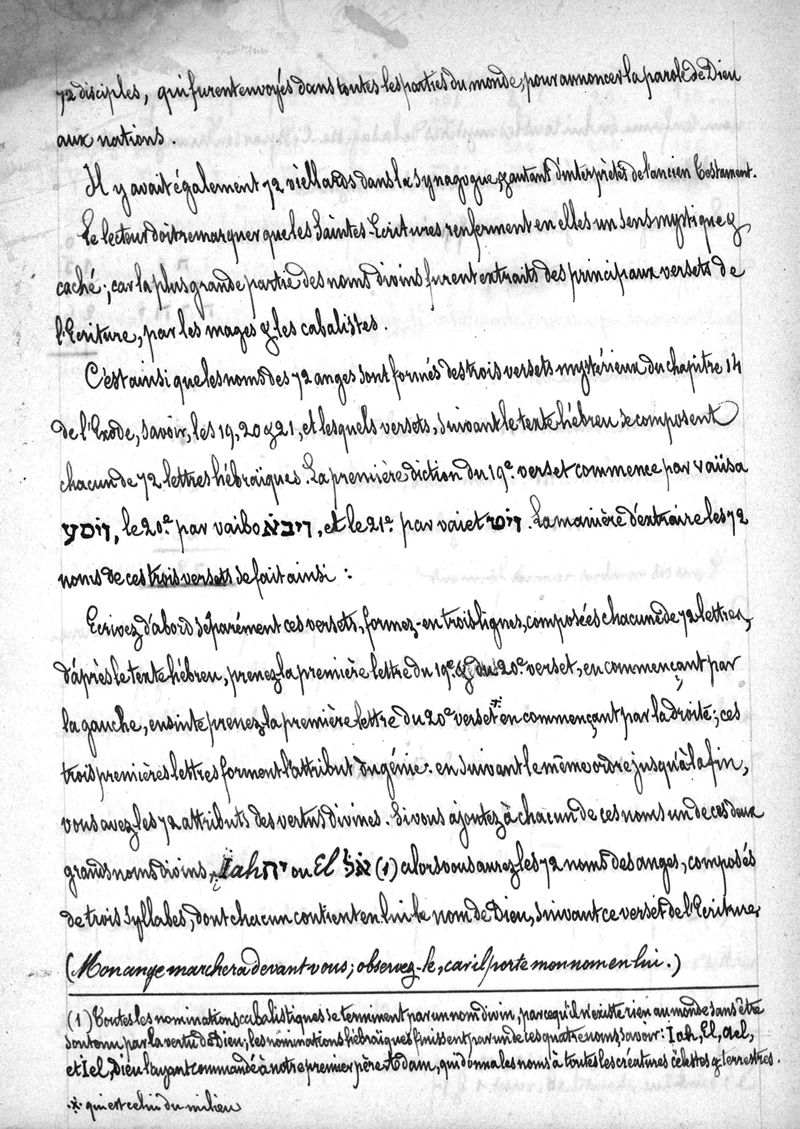 72 disciples, qui furent envoyés dans toutes les parties du monde, pour annoncer la parole de Dieu
aux nations.
Il y avait également 72 viellards dans la synagogue, & autant d'interprètes de l'ancien Testament.
Le lecteur doit remarquer que les Saintes-Ecritures renferment en elles un sens mystique &
caché ; car la plus grande partie des noms divins furent extraits des principaux versets de
l'Ecriture, par les mages & les cabalistes.
C'est ainsi que les noms des 72 anges sont formés des trois versets mystérieux du chapitre 14
de l'Exode, savoir, les 19, 20 & 21, et lesquels versets, suivant le texte hébreu se composent
chacun de 72 lettres hébraïques. La première diction du 19e. verset commence par vaïisa
ויסע, le 20e. par vaibo ויבא, et le 21e. par vaiet ויט. La manière d'extraire les 72
noms de ces trois versets se fait ainsi :
Ecrivez d'abord séparément ces versets, formez-en trois lignes, composées chacune de 72 lettres,
d'après le texte hébreu, prenez la première lettre du 19e & du 20e verset, en commençant par
la gauche, ensinte prenez la première lettre du 20e verset* en commençant par la droite ; ces
trois premières lettres forment l'attribut du génie : en suivant le même ordre jusqu'à la fin,
vous avez les 72 attributs des vertus divines. Si vous ajoutez à chacun de ces noms un de ces deux
grands noms divins, Iah יה ou El אל (1) alors vous aurez les 72 noms des anges, composés
de trois syllabes, dont chacun contient en lui le nom de Dieu, suivant ce verset de l'Ecriture
(Mon ange marchera devant vous ; observez-le, car il porte mon nom en lui.)
(1) Toutes les nominations cabalistiques se terminent par un nom divin, parce qu'il n'existe rien au monde sans être
soutenu par la vertu de Dieu ; les nominations hébraïques finissent par un de ces quatre noms savoir : Iah, El, Ael,
et Iel, Dieu l'ayant commandé à notre premier père Adam, qui donna les noms à toutes les créatures célestes & terrestres.
* qui est celui du milieu